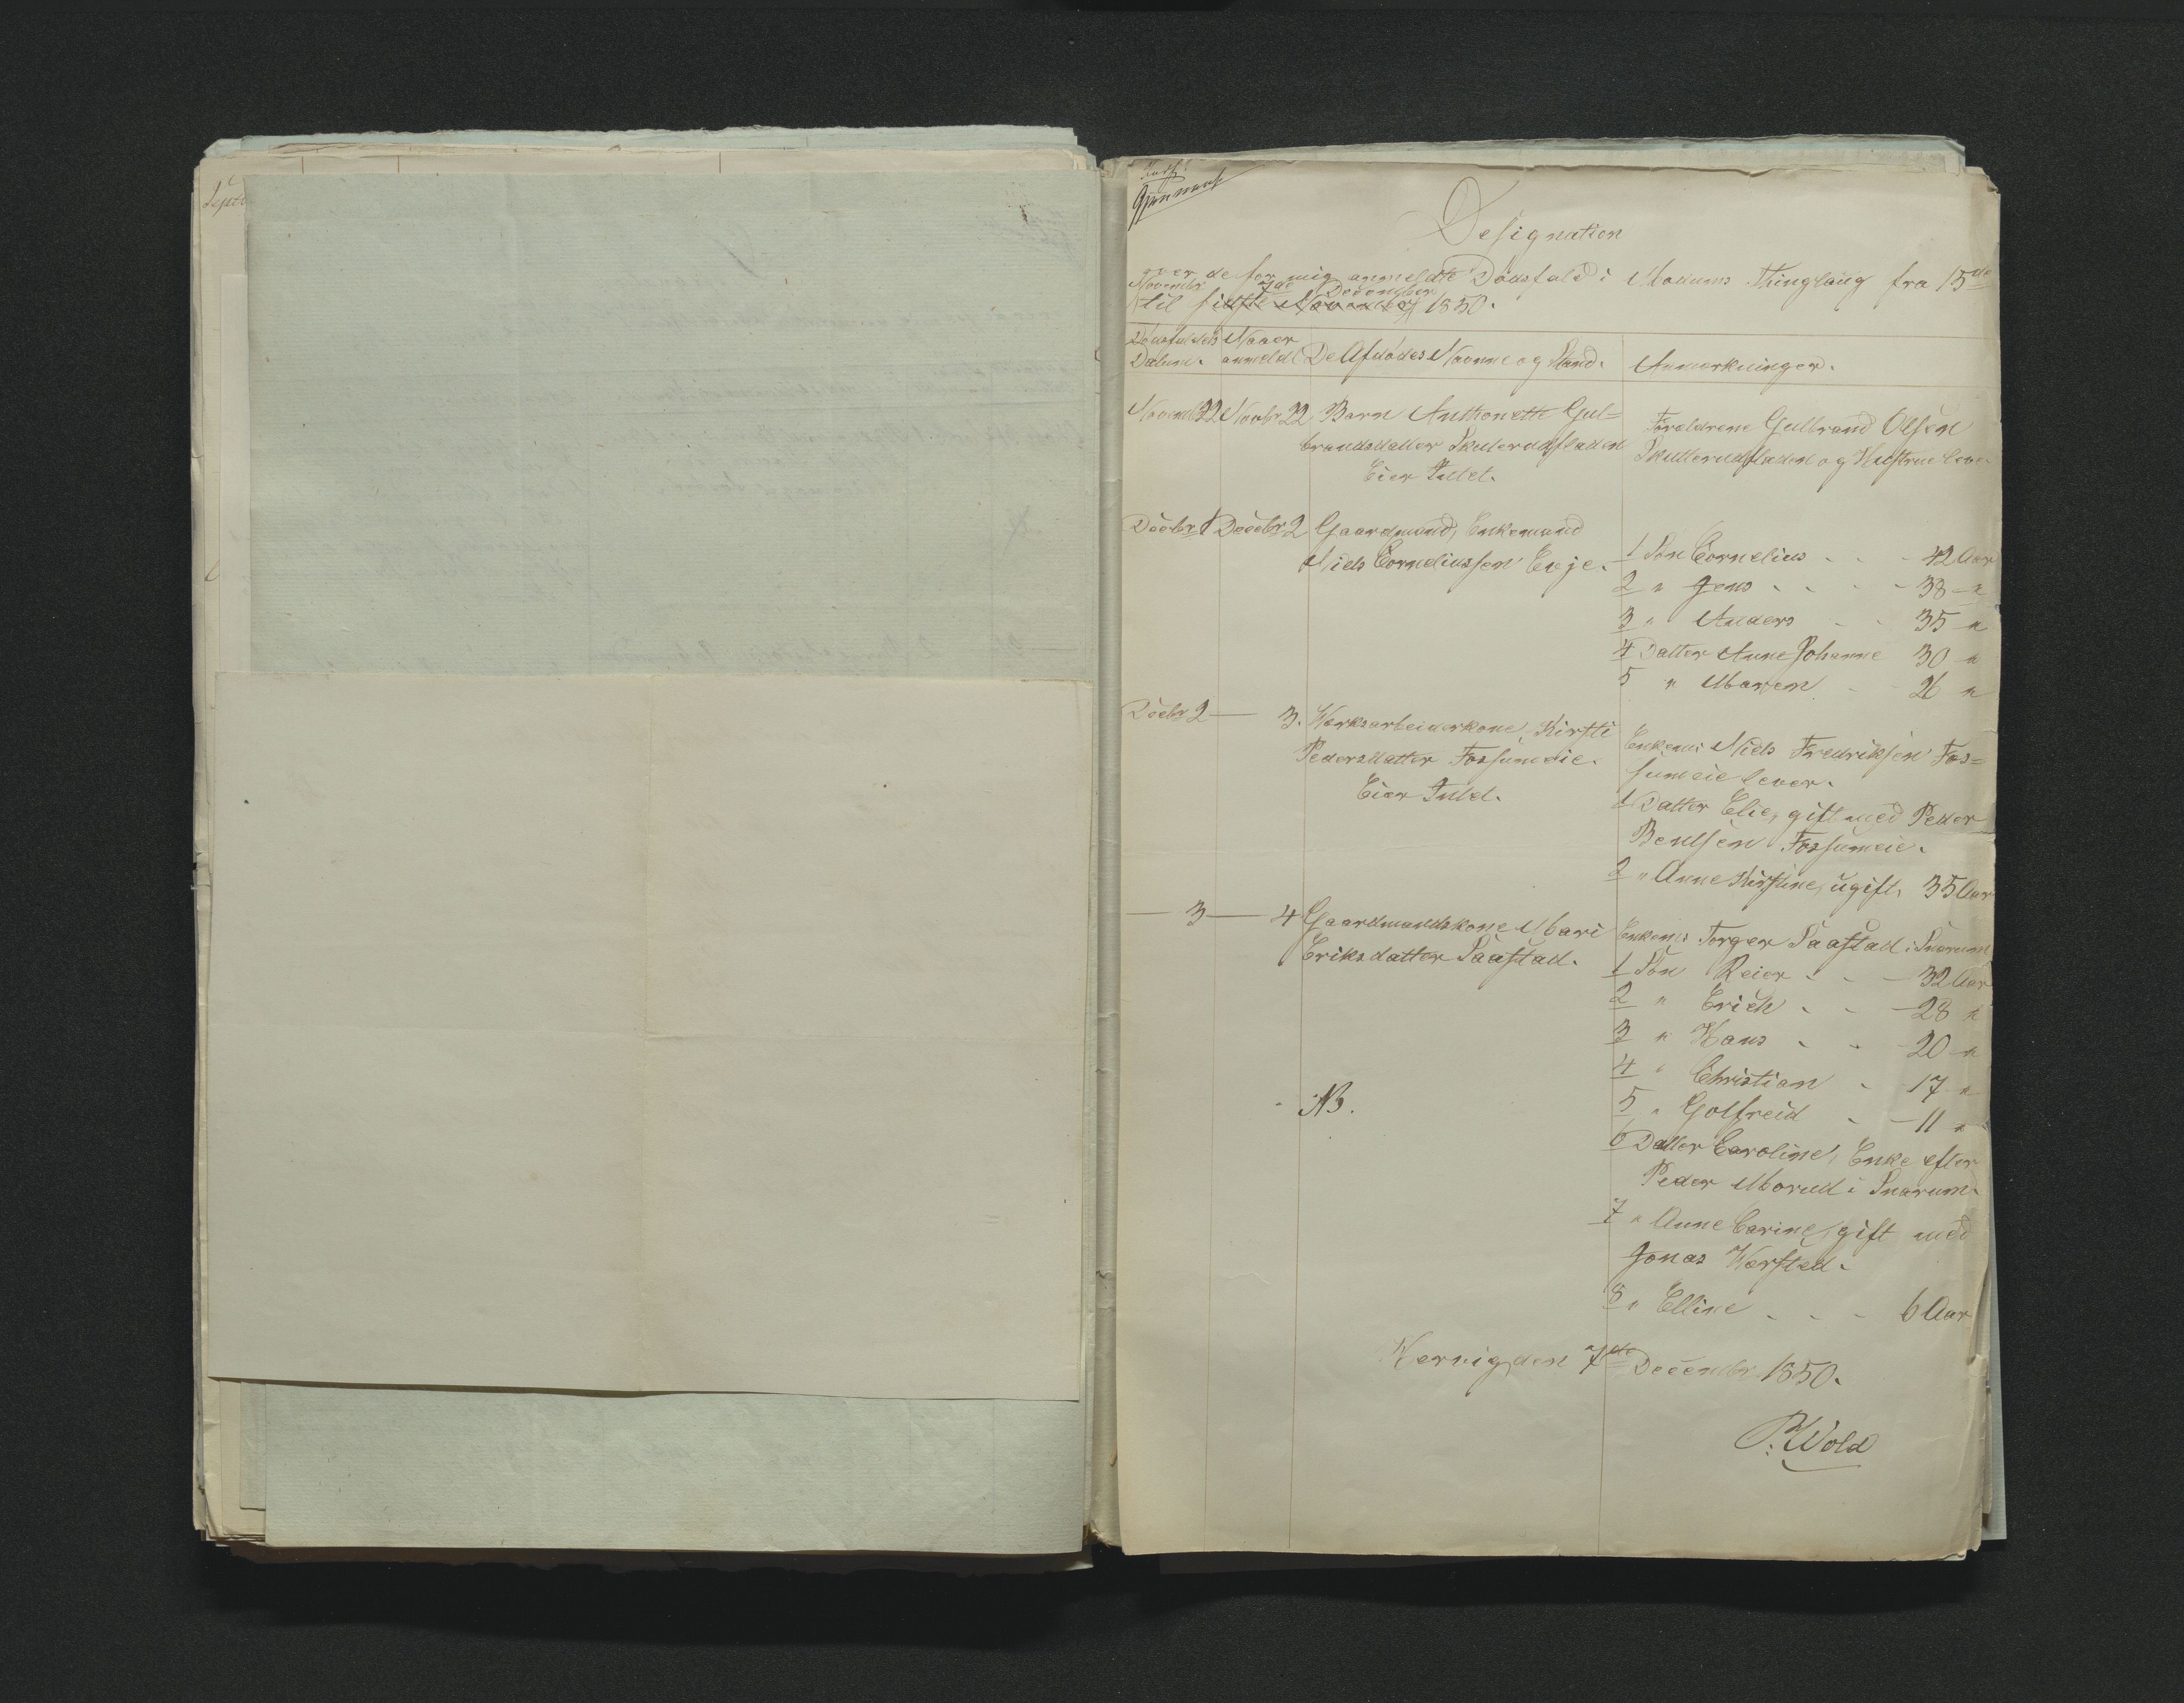 Designation
over de for mig anmeldte Dødsfald i Modums Thinglaug fra 15de
November til sidste November 7de December 1850.
Dødsfaldets Datum.
Naar anmeldt
De Afdødes Navne og Stand.
Anmærkninger.
Novembr 22 Novbr 22 Barn Anthonette Gul=
brandsdatter Skuterudfladen
Eier Intet.
Forældrene Gulbrand Olsen
Skutterudfladen og Hustrue leve.
Decbr 1 Decebr 2 Gaardmand, Enkemand
Niels Corneliussen Evje.
1 Søn Cornelius - - - 42 Aar
2 " Jens - - - - 38 - "
3 " Anders - - 35 - "
4 Datter Anne Johanne 30 - "
5 " Maren - - 26 "
Decbr 2 — 3. Værksarbeiderkone, Kirsti
Pedersdatter Fossumeie.
Eier Intet.
Enkem: Niels Fredriksen Fos=
sumeie lever.
1 Datter Elie, gift med Peder
Bentsen Fossumeie.
2 " Anne Kirstine, ugift, 35 Aar
— 3 — 4 Gaardmandskone Mari
Eriksdatter Saastad.
Enkem: Torger Saastad i Snarum
1 Søn Reier - - - 32 Aar
2 " Erich - - - 28 "
3 " Hans - - - 20 - "
4 " Christian - 17 "
NB.
5 " Golfreid - - 11 "
6 Datter Caroline, Enke efter
Peder Morud i Snarum.
7 " Anne Carine, gift med
Jonas Værsted.
8 " Elline - - - 6 Aar
den 7de Decembr 1850.
P. Wold